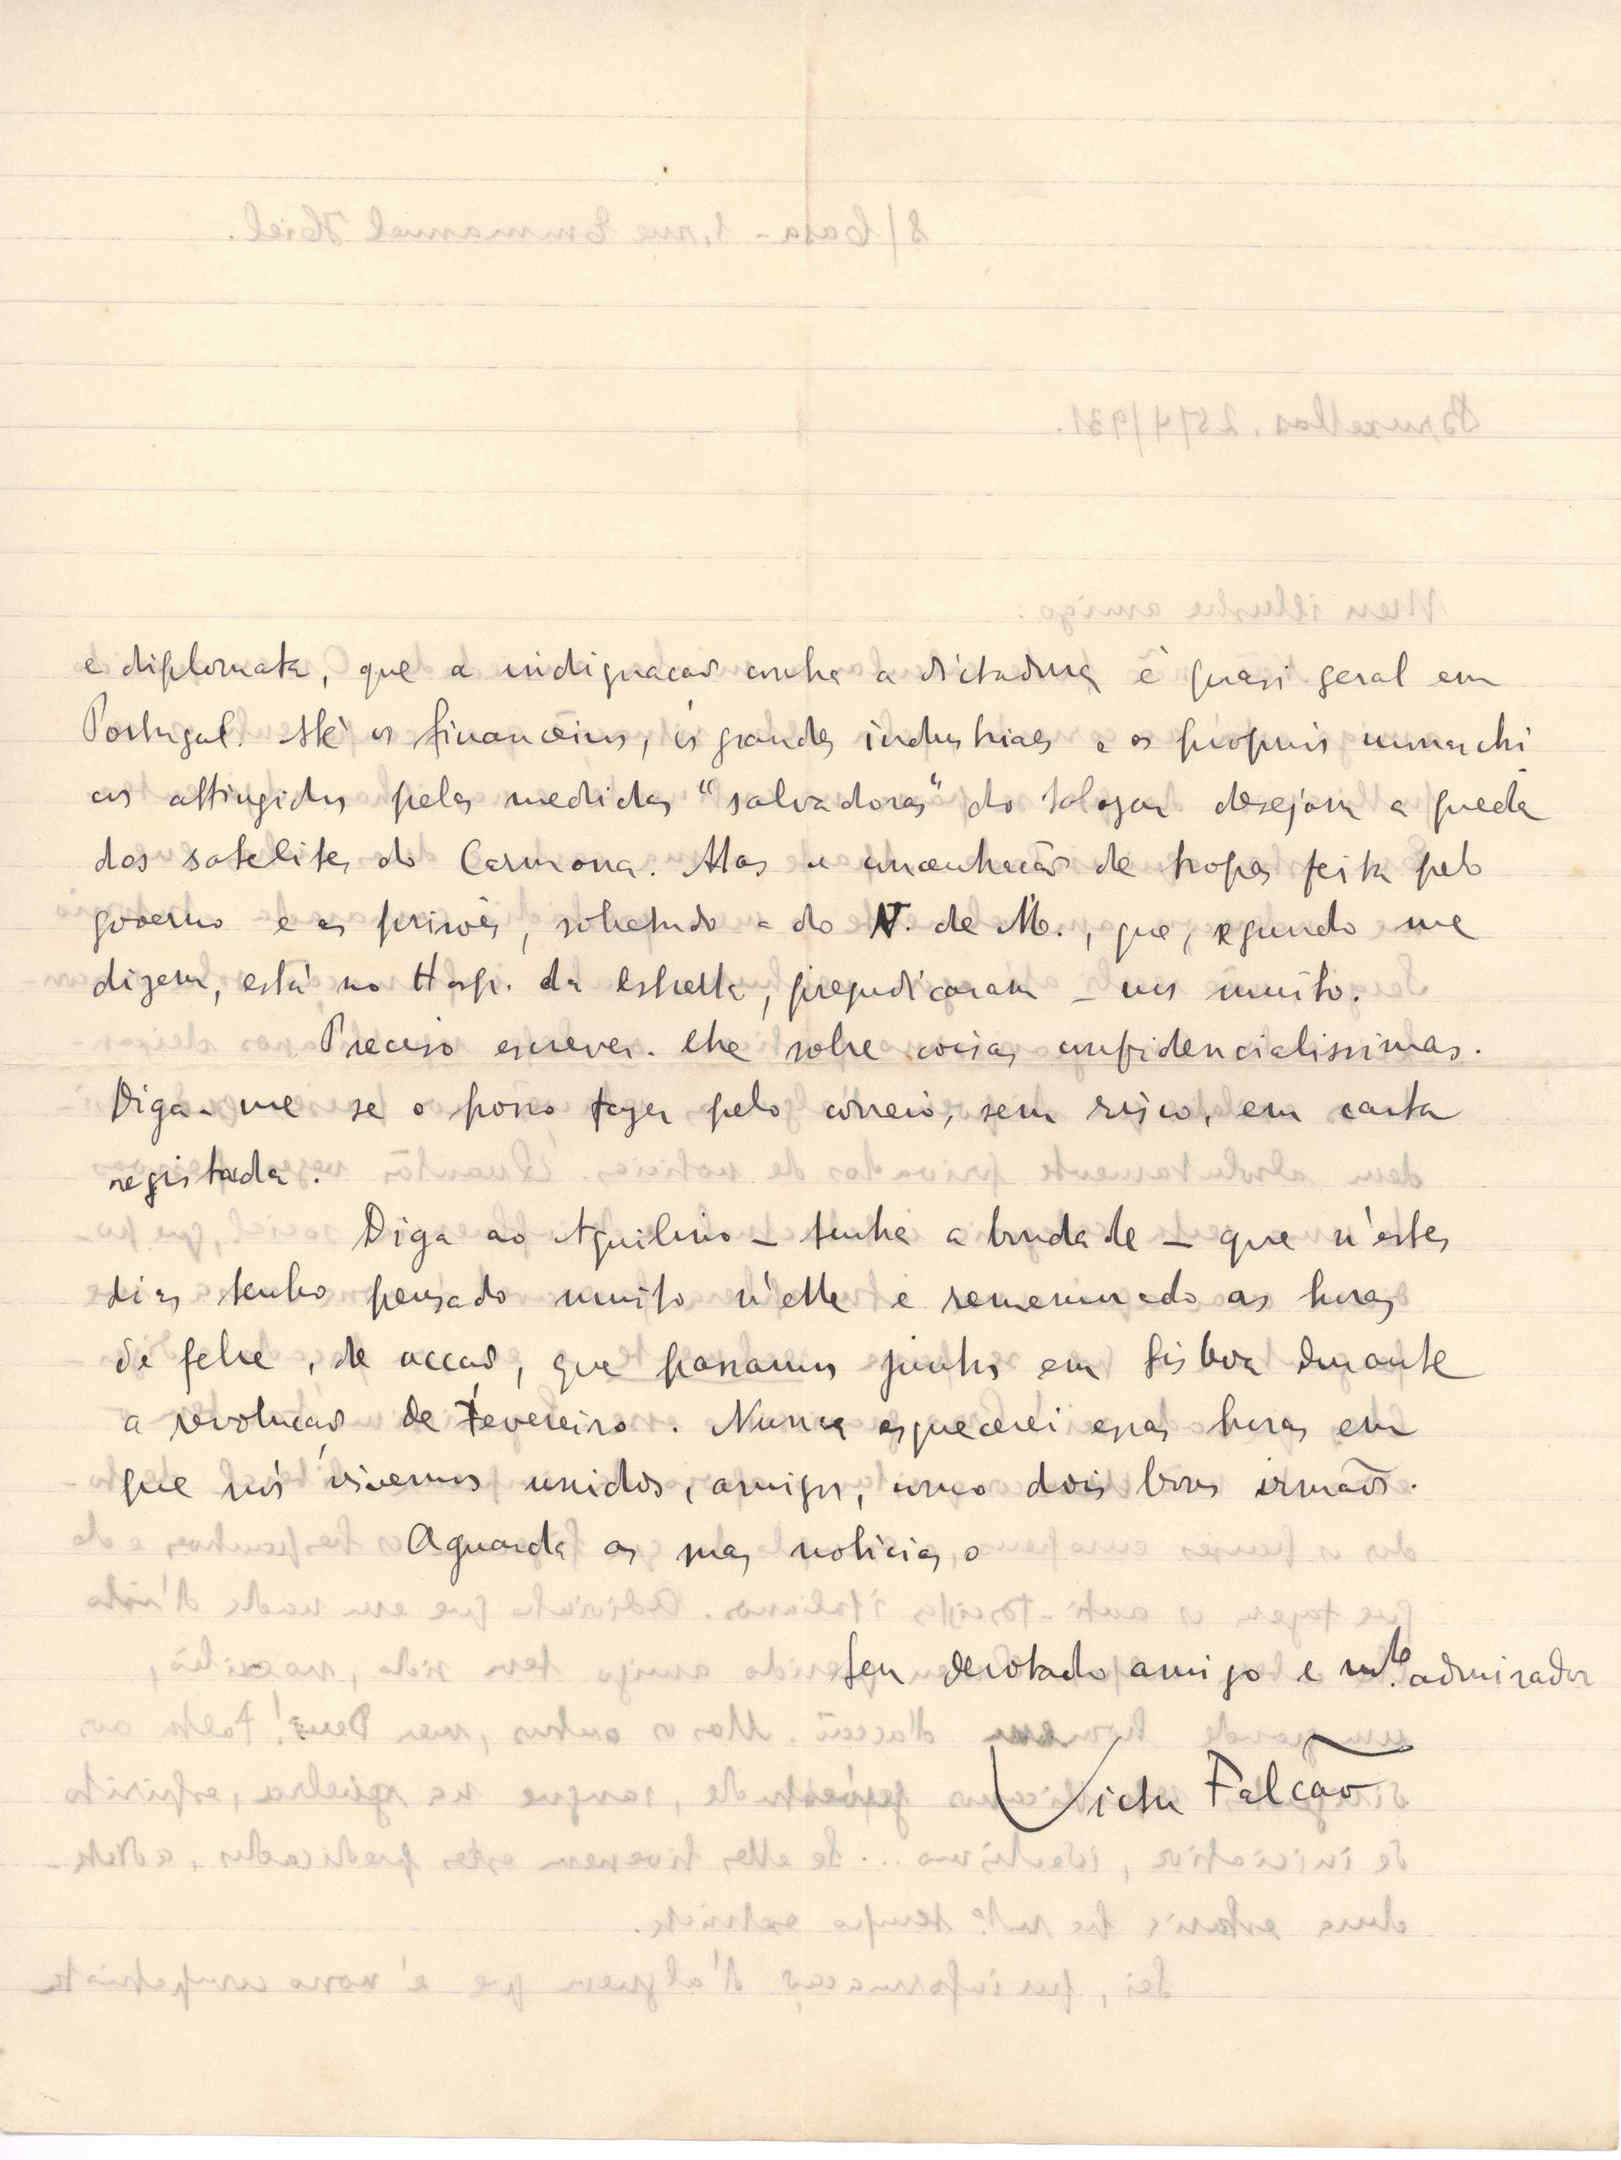 e diplomata, que a indignação contra a dictadura é quasi geral em
Portugal. Até os financeiros, os grandes industriaes e os proprios monarchi
cos attingidos pelas medidas "salvadoras" do Salazar desejam a queda
dos satelites do Carmona. Mas a concentração de tropas feita pelo
governo e as prisões, sobretudo a do N. de M., que, segundo me
dizem, está no Hosp. da Estrella, prejudicaram-nos muito.
Preciso escrever-lhe sobre coisas confidencialissimas.
Diga-me se o posso fazer pelo correio, sem risco, em carta
registada.
Diga ao Aquilino - tenha a bondade - que n'estes
dias tenho pensado muito n'elle e rememorado as horas
de febre, de acção, que passamos juntos em Lisboa durante
a revolução de Fevereiro. Nunca esquecerei essas horas em
que nós vivemos unidos, amigos, como dois bons irmãos.
Aguarda as suas noticias o
Seu devotado amigo e mto. admirador
Victor Falcão